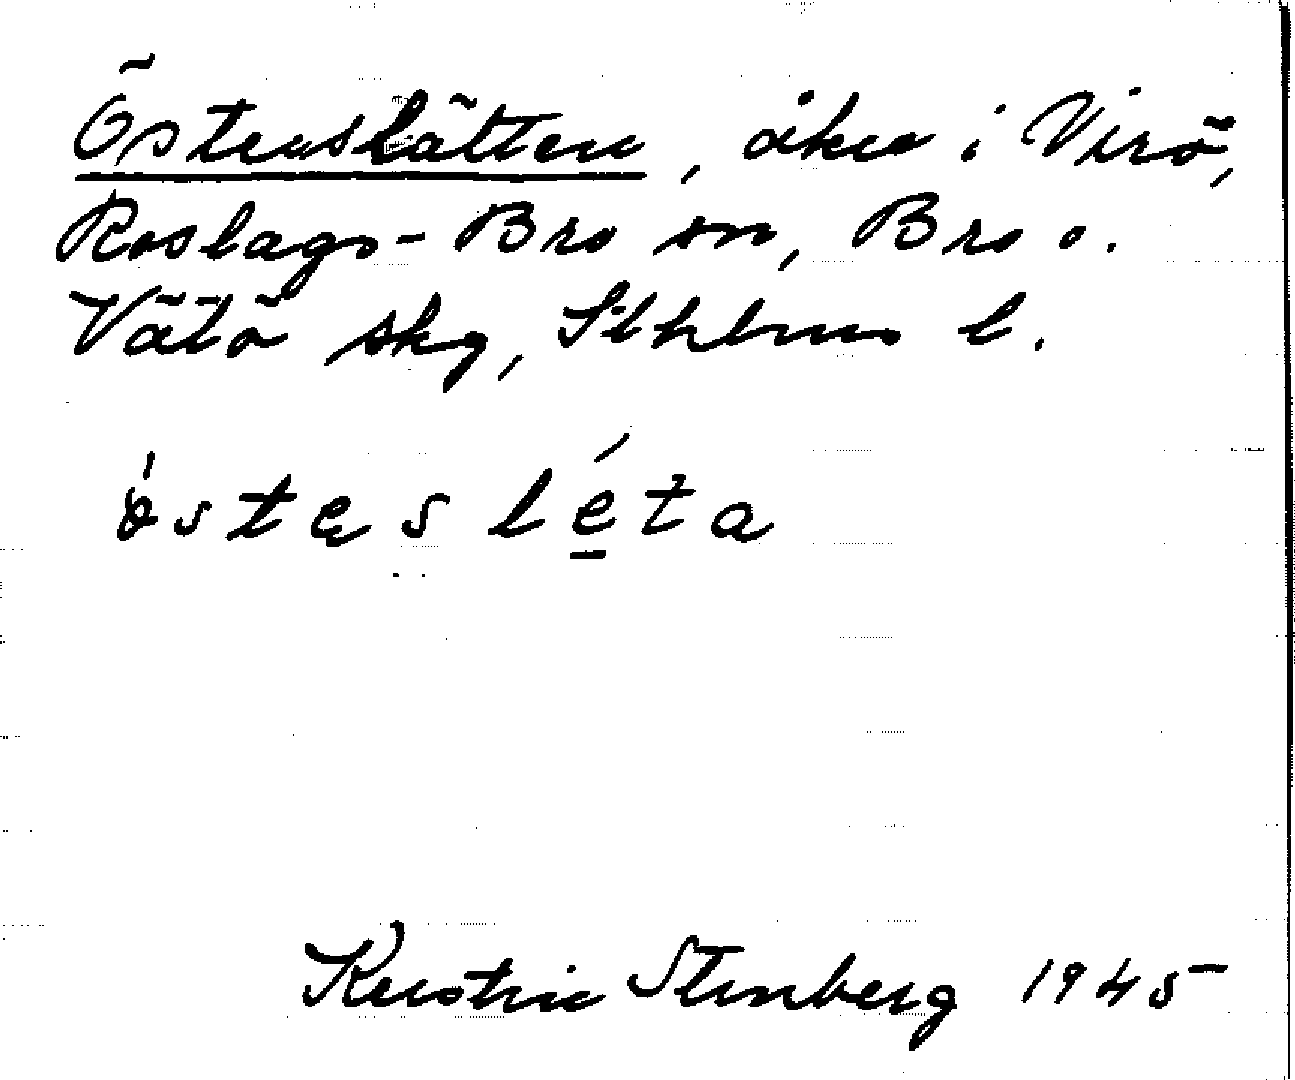 Österslätten, åker i Virö,
Roslags-Bro sn, Bro o.
Vätö skg, Sthlms l.
östęs léta
Kerstin Stenberg 1945